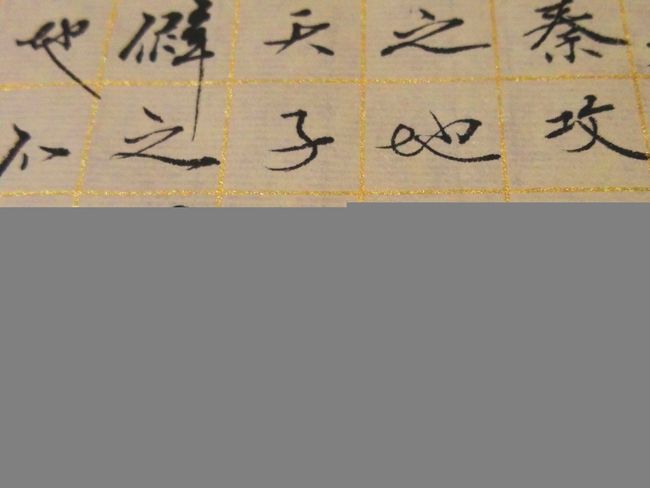 秦攻
之地
天子
僻之
也不